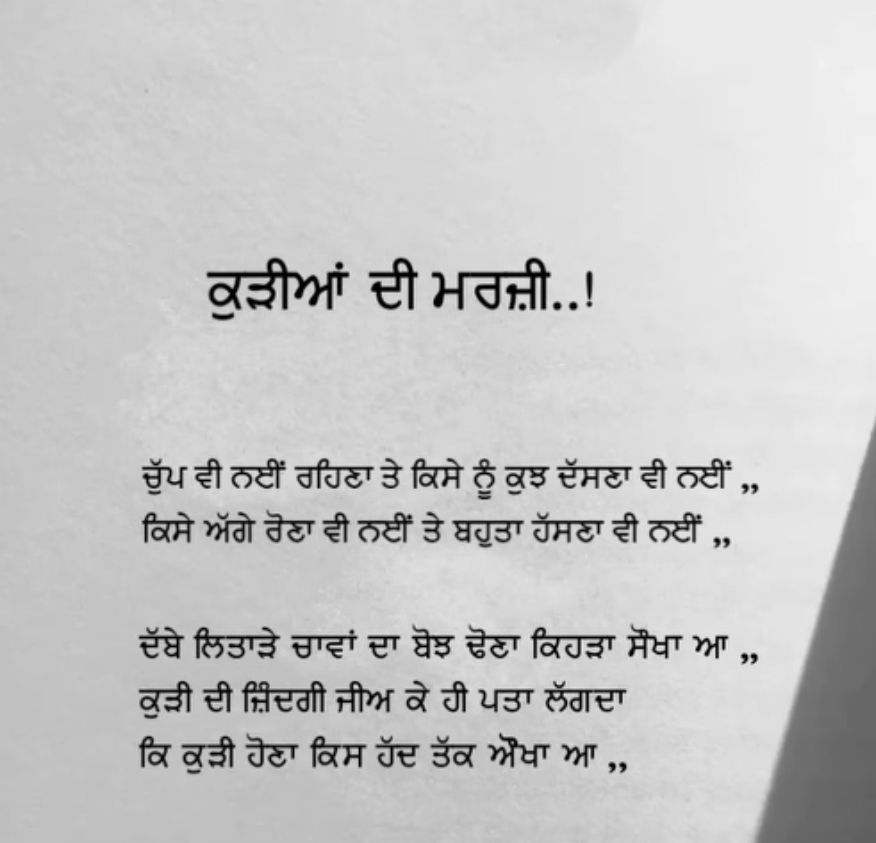 ਕੁੜੀਆਂ ਦੀ ਮਰਜ਼ੀ..!
ਚੁੱਪ ਵੀ ਨਈਂ ਰਹਿਣਾ ਤੇ ਕਿਸੇ ਨੂੰ ਕੁਝ ਦੱਸਣਾ ਵੀ ਨਈਂ ,,
ਕਿਸੇ ਅੱਗੇ ਰੋਣਾ ਵੀ ਨਈਂ ਤੇ ਬਹੁਤਾ ਹੱਸਣਾ ਵੀ ਨਈਂ ,,
ਦੱਬੇ ਲਿਤਾੜੇ ਚਾਵਾਂ ਦਾ ਬੋਝ ਢੋਣਾ ਕਿਹੜਾ ਸੌਖਾ ਆ ,,
ਕੁੜੀ ਦੀ ਜ਼ਿੰਦਗੀ ਜੀਅ ਕੇ ਹੀ ਪਤਾ ਲੱਗਦਾ
ਕਿ ਕੁੜੀ ਹੋਣਾ ਕਿਸ ਹੱਦ ਤੱਕ ਔਖਾ ਆ ,,